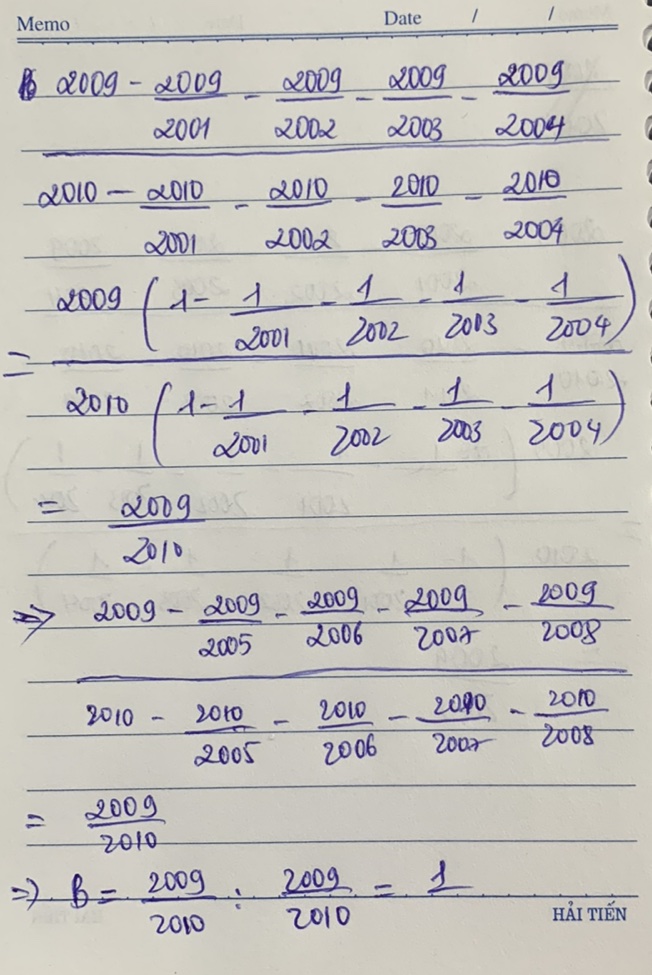 Memo Date / /
B 2009 - 2009/2001 - 2009/2002 - 2009/2003 - 2009/2004
2010 - 2010/2001 - 2010/2002 - 2010/2003 - 2010/2004
2009 (1 - 1/2001 - 1/2002 - 1/2003 - 1/2004)
=
2010 (1 - 1/2001 - 1/2002 - 1/2003 - 1/2004)
= 2009/2010
=> 2009 - 2009/2005 - 2009/2006 - 2009/2007 - 2009/2008
2010 - 2010/2005 - 2010/2006 - 2010/2007 - 2010/2008
= 2009/2010
=> B = 2009/2010 : 2009/2010 = 1
HẢI TIẾN